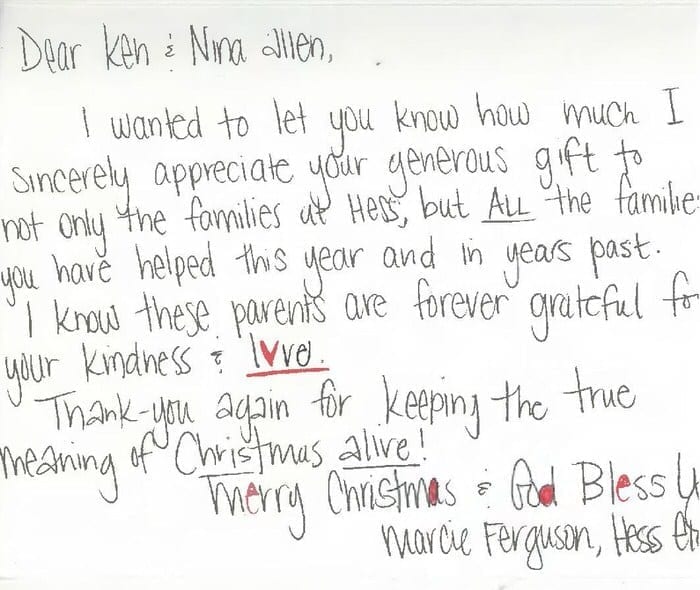 Dear Ken & Nina Allen,
I wanted to let you know how much I
sincerely appreciate your generous gift to
not only the families at Hess, but ALL the familie
you have helped this year and in years past.
I know these parents are forever grateful fo
your kindness & love.
Thank-you again for keeping the true
meaning of Christmas alive!
Merry Christmas & God Bless Y
Marcie Ferguson, Hess El